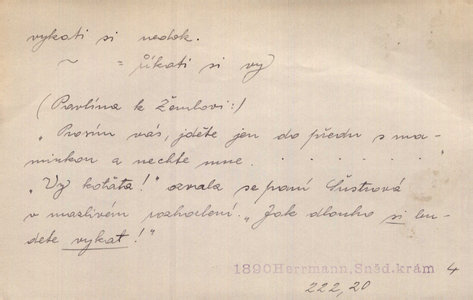 vykati si nedok.
~ = říkati si vy
(Pavlína k Žemlovi:)
"Prosím vás, jděte jen do předu s ma-
minkou a nechte mne. . . . . . . . .
"Vy koťata!" ozvala se paní Šustrová
v mazlivém rozhorlení. "Jak dlouho si bu-
dete vykat!"
1890 Herrmann, Sněd. krám 4
222, 20